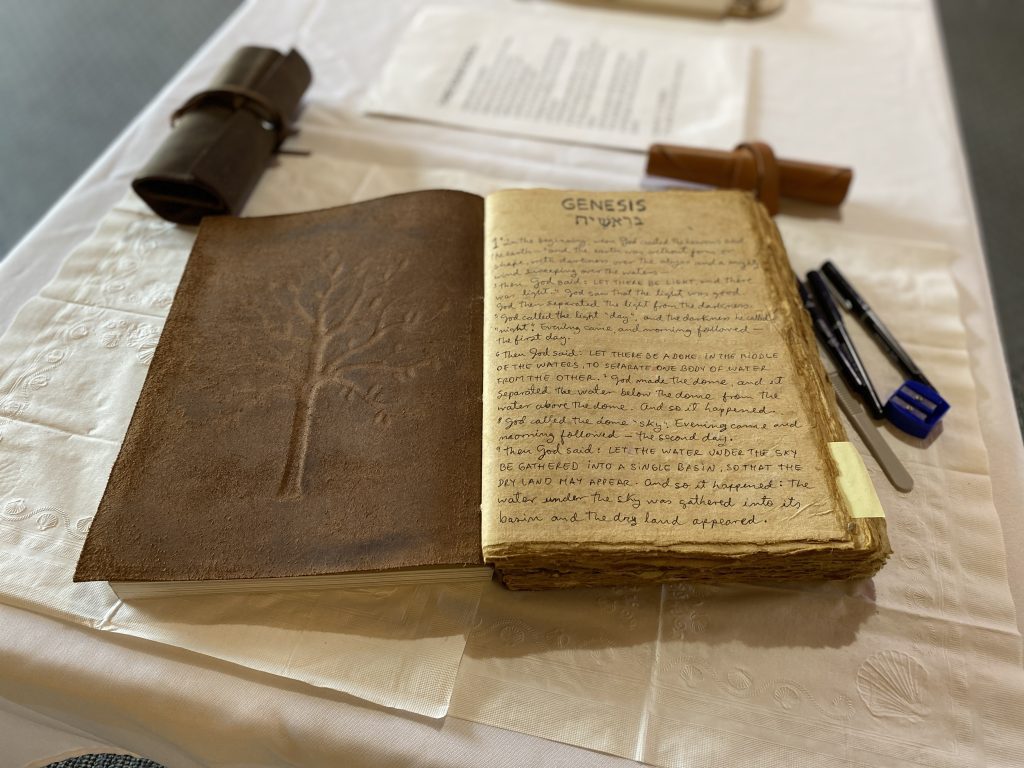 GENESIS
בראשית
1 In the beginning, when God created the heavens and
the earth — ²and the earth was without form or
shape, with darkness over the abyss and a mighty
wind sweeping over the waters —
³ Then God said: LET THERE BE LIGHT, and there
was light. ⁴ God saw that the light was good.
God then separated the light from the darkness.
⁵ God called the light "day", and the darkness he called
"night". Evening came, and morning followed —
the first day.
⁶ Then God said: LET THERE BE A DOME IN THE MIDDLE
OF THE WATERS, TO SEPARATE ONE BODY OF WATER
FROM THE OTHER. ⁷ God made the dome, and it
separated the water below the dome from the
water above the dome. And so it happened.
⁸ God called the dome "sky". Evening came and
morning followed — the second day.
⁹ Then God said: LET THE WATER UNDER THE SKY
BE GATHERED INTO A SINGLE BASIN, SO THAT THE
DRY LAND MAY APPEAR. And so it happened: The
water under the sky was gathered into its
basin and the dry land appeared.